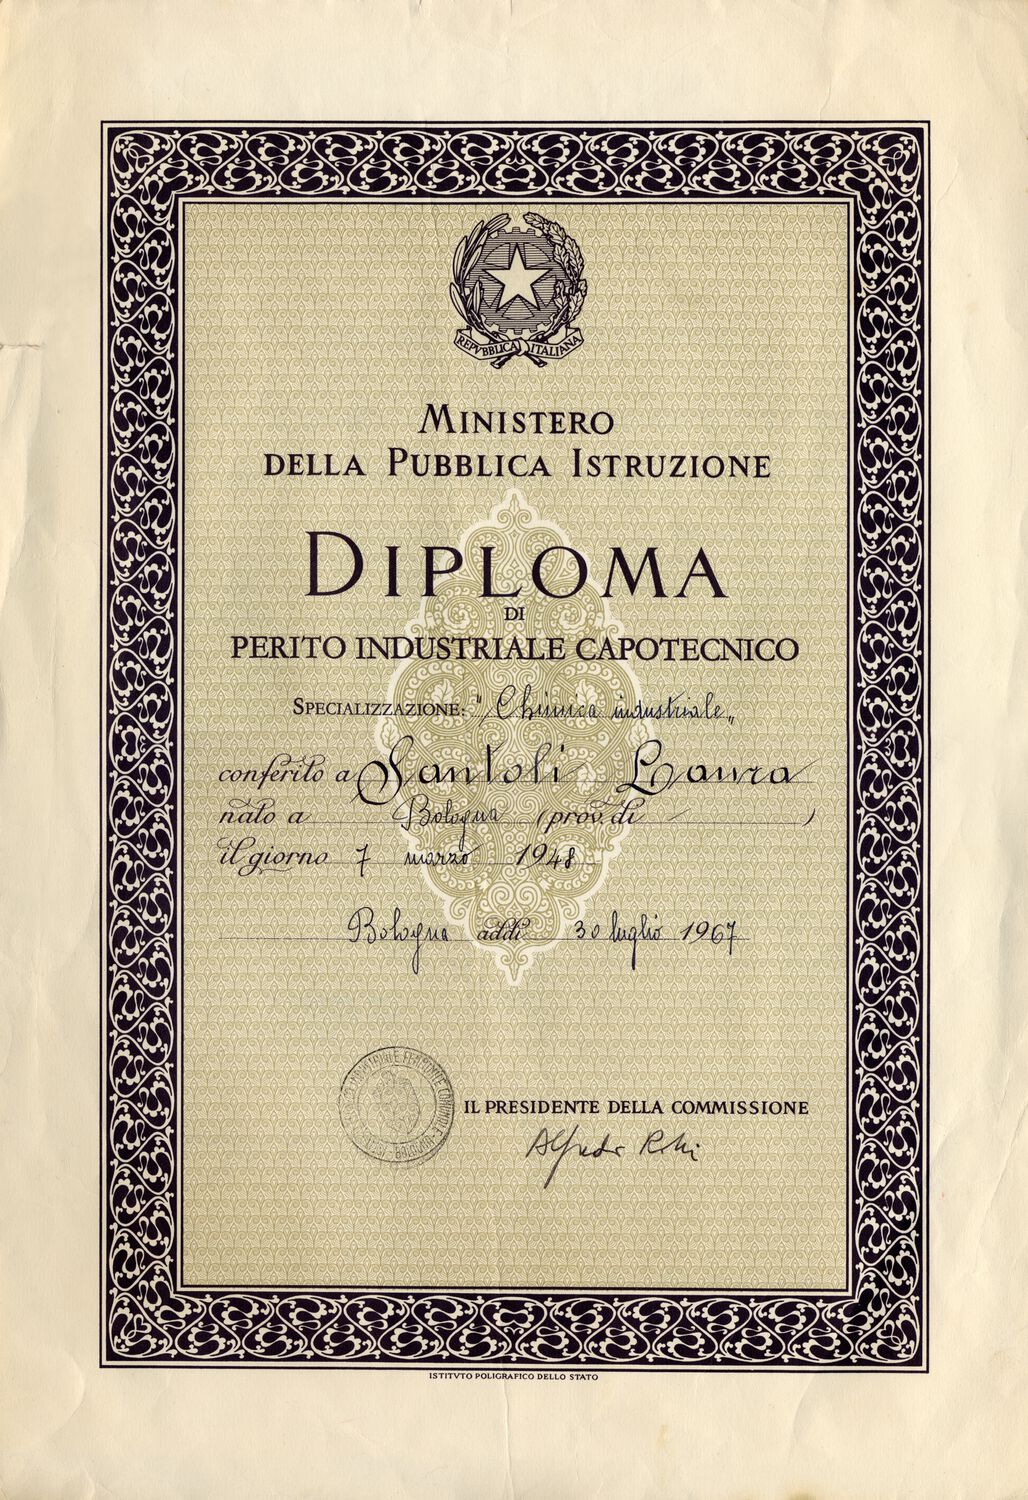 REPVBBLICA ITALIANA
MINISTERO
DELLA PUBBLICA ISTRUZIONE
DIPLOMA
DI
PERITO INDUSTRIALE CAPOTECNICO
SPECIALIZZAZIONE: "Chimica industriale"
conferito a Santoli Laura
nato a Bologna (prov. di - )
il giorno 7 marzo 1948
Bologna addì 30 luglio 1967
IL PRESIDENTE DELLA COMMISSIONE
Alfredo
ISTITVTO POLIGRAFICO DELLO STATO